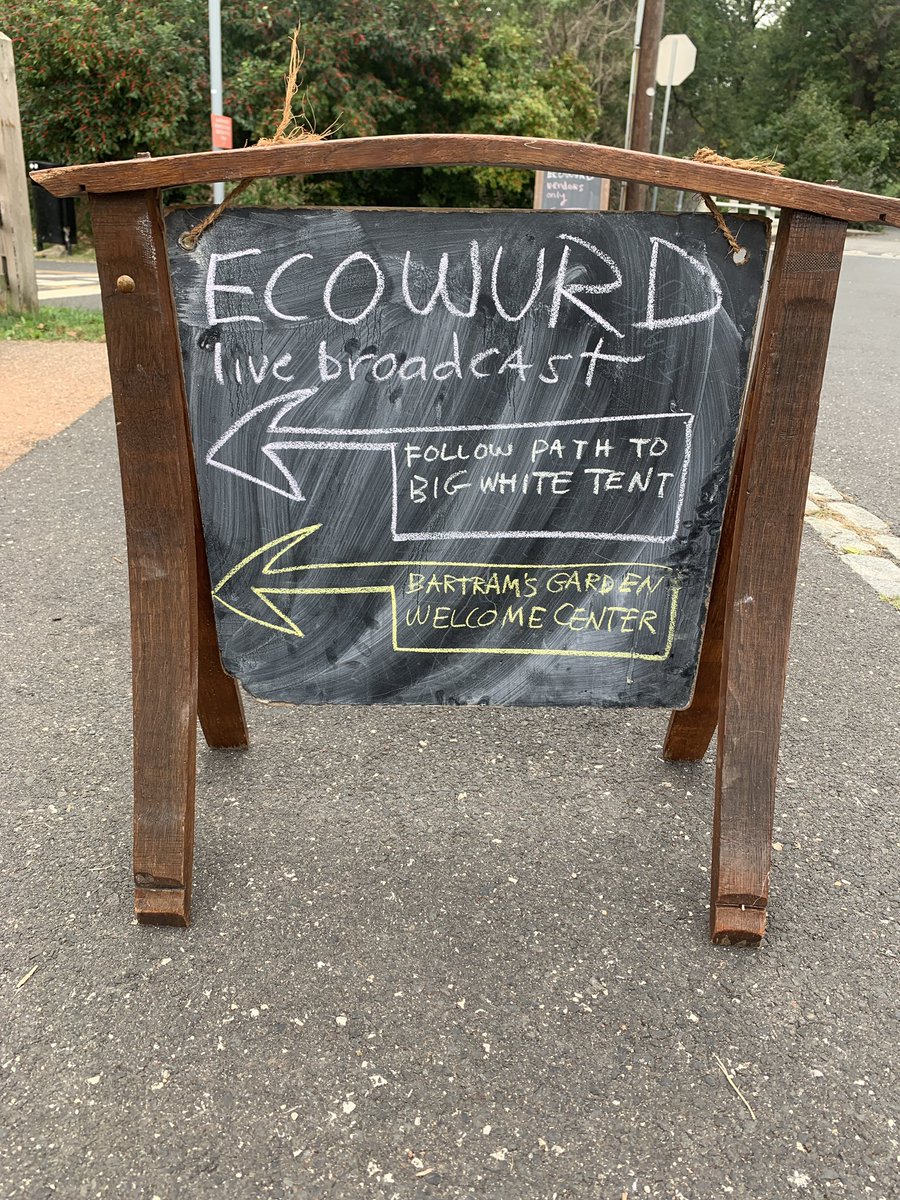 ECOWURD
live broadcast
FOLLOW PATH TO
BIG WHITE TENT
BARTRAM'S GARDEN
WELCOME CENTER
vendors
only